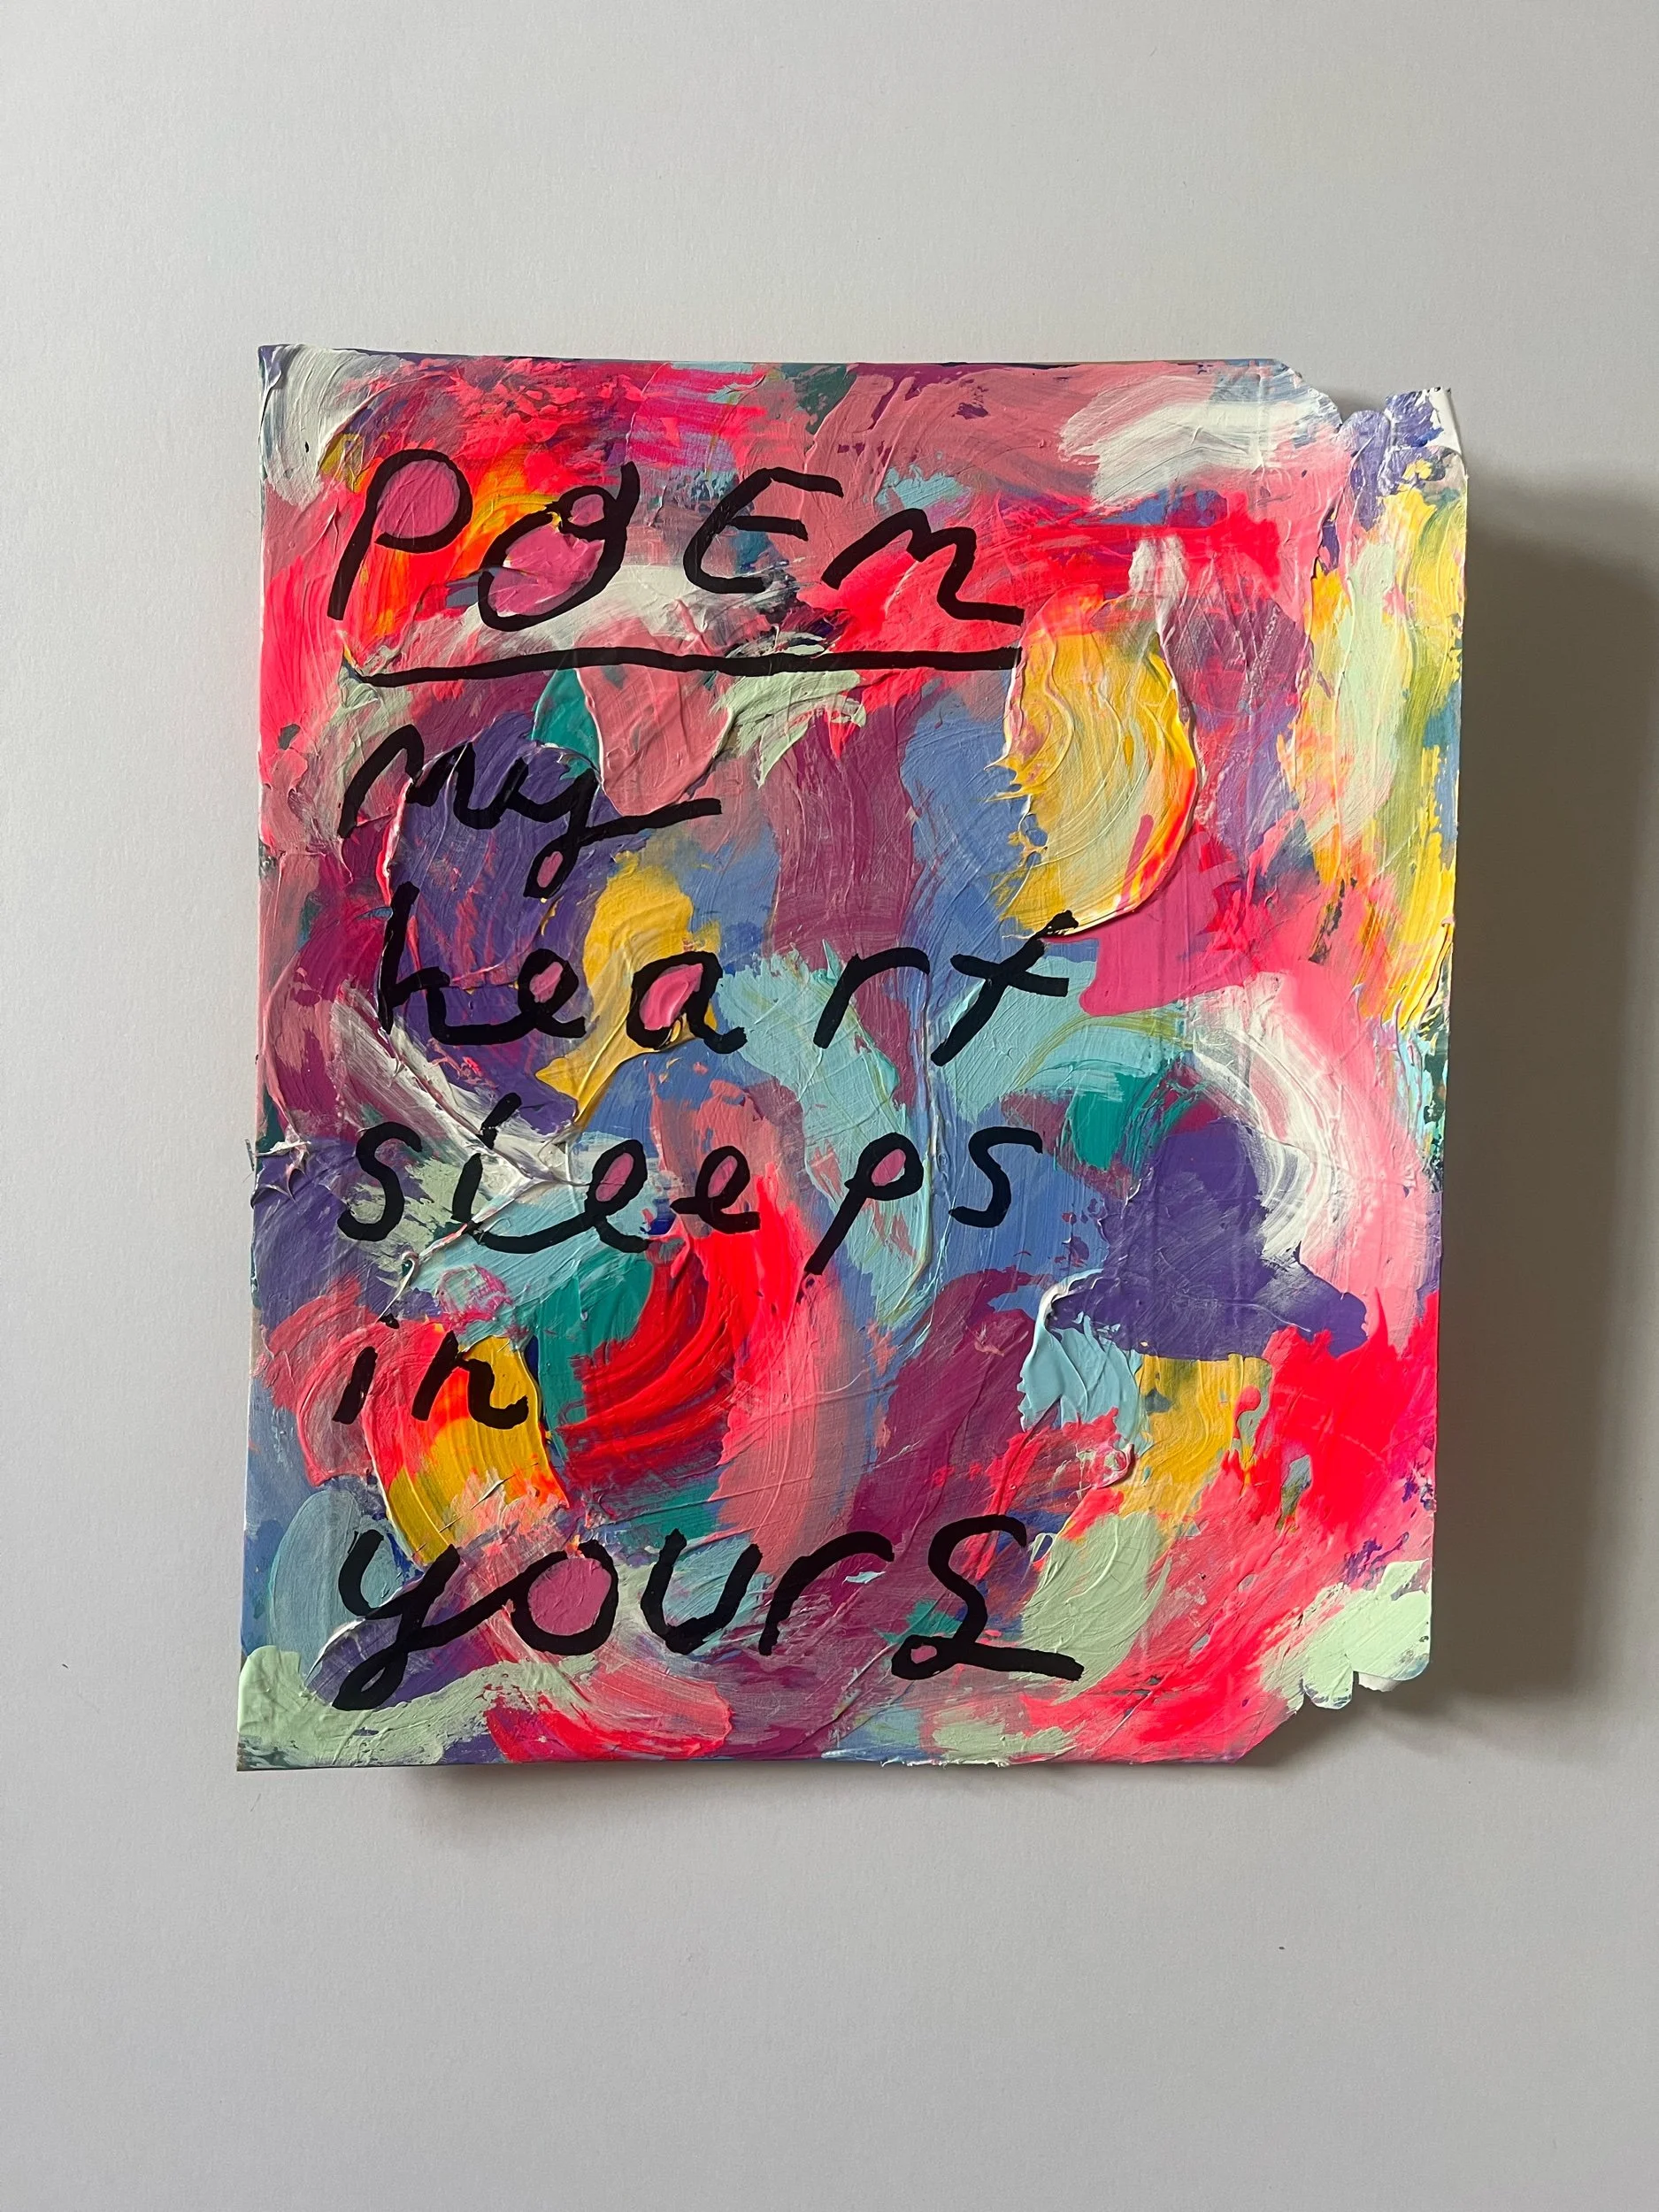 PoEm
my
heart
sleeps
in
yours